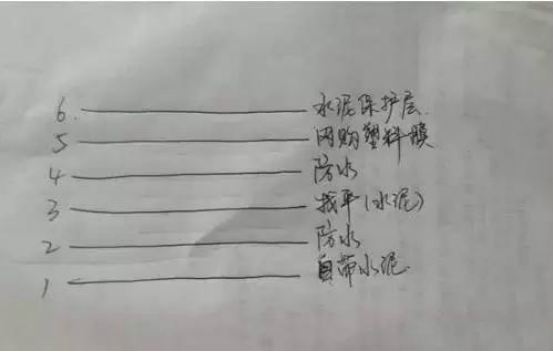 6. 水泥保护层.
5 网购塑料膜
4 防水
3 找平(水泥)
2 防水
1 自带水泥.